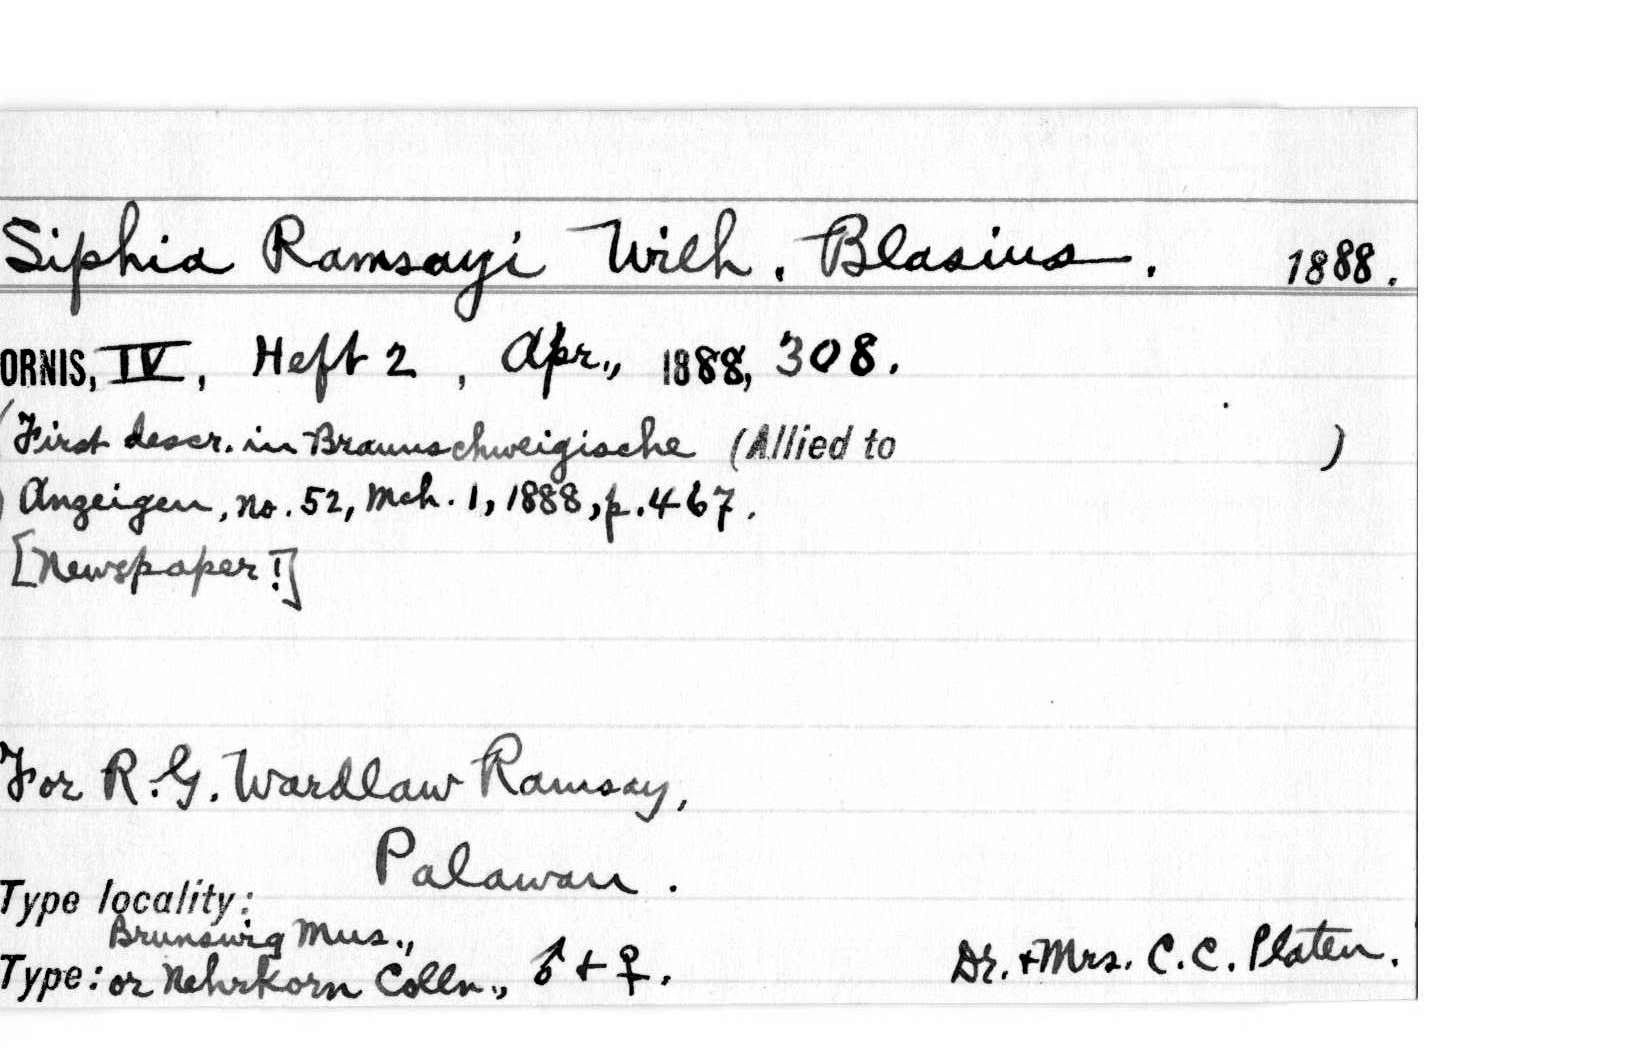 Siphia Ramsayi Wilh. Blasius. 1888.
ORNIS, IV, Heft 2, Apr., 1888, 308.
(First descr. in Braunschweigische (Allied to )
Anzeigen, no. 52, Mch. 1, 1888, p. 467.
[Newspaper!]
For R. G. Wardlaw Ramsay,
Palawan.
Type locality:
Brunswig Mus.,
Type: or Nehrkorn Colln., ♂ + ♀. Dr. + Mrs. C. C. Platen.